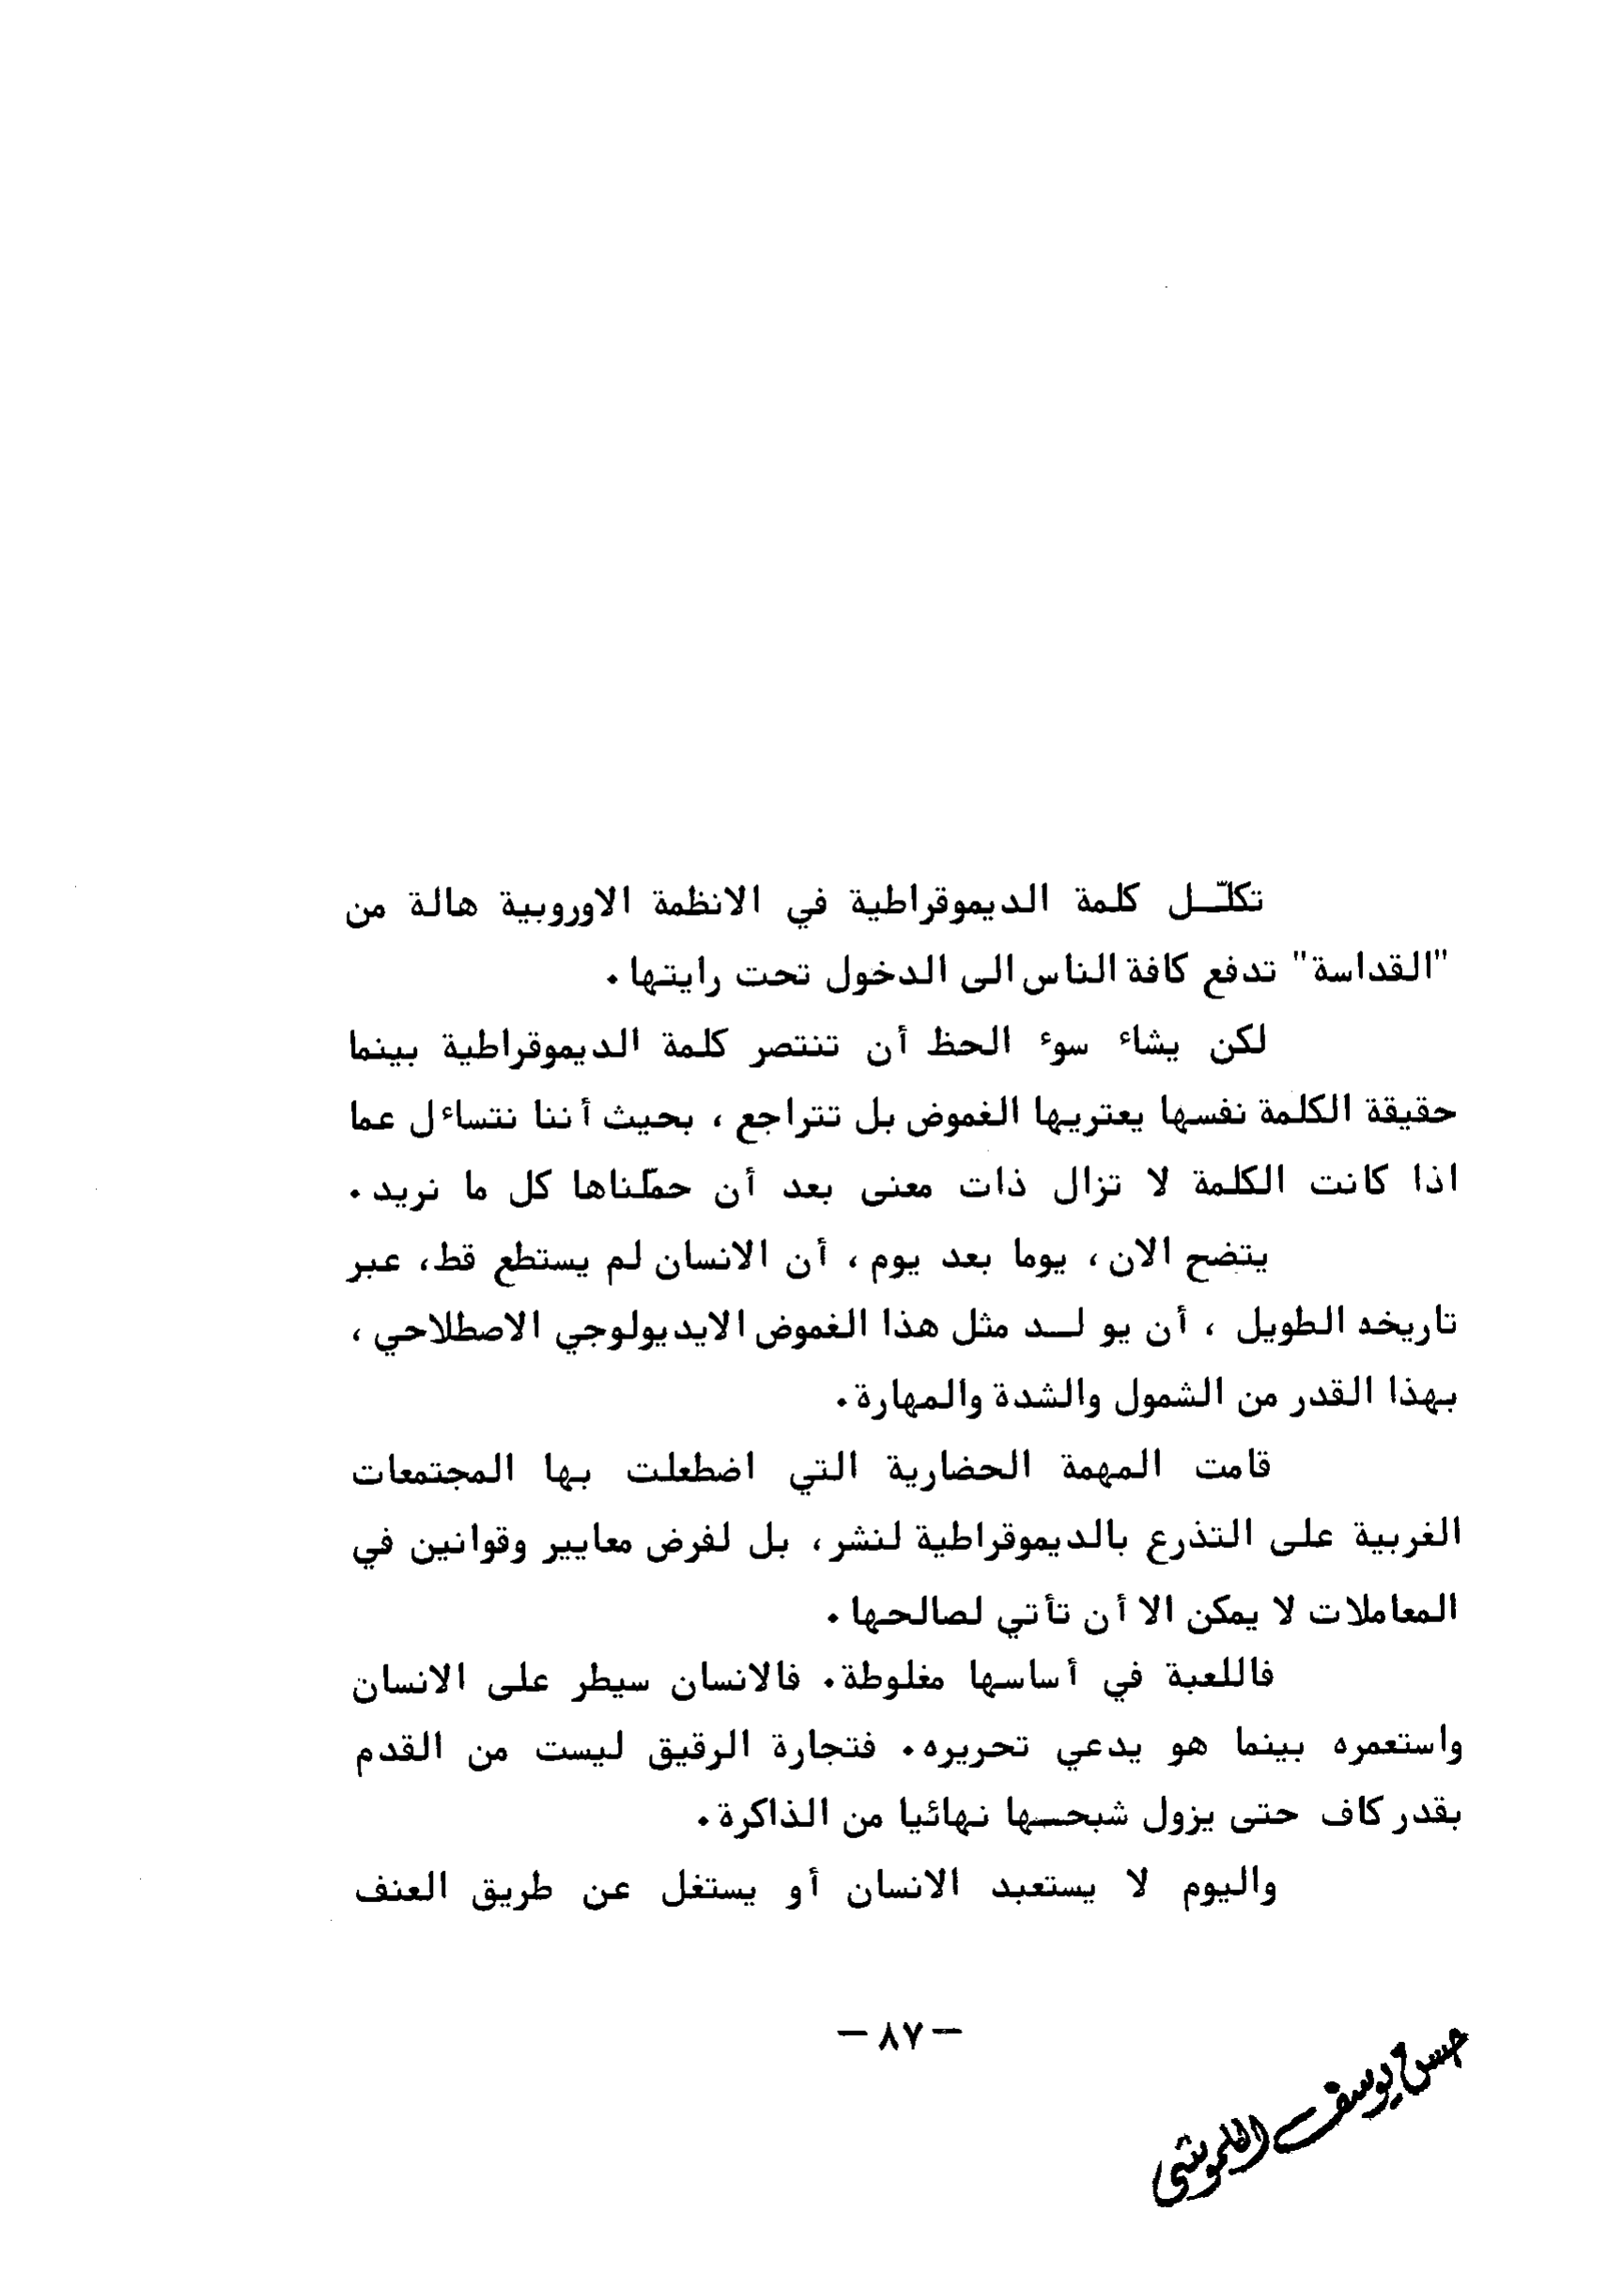 تكلّـل كلمة الديموقراطية في الانظمة الاوروبية هالة من
"القداسة" تدفع كافة الناس الى الدخول تحت رايتها ٠
لكن يشاء سوء الحظ أن تنتصر كلمة الديموقراطية بينما
حقيقة الكلمة نفسها يعتريها الغموض بل تتراجع ، بحيث أننا نتساءل عما
اذا كانت الكلمة لا تزال ذات معنى بعد أن حمّلناها كل ما نريد ٠
يتضح الان ، يوما بعد يوم ، أن الانسان لم يستطع قط، عبر
تاريخه الطويل ، أن يو لـــد مثل هذا الغموض الايديولوجي الاصطلاحي ،
بهذا القدر من الشمول والشدة والمهارة ٠
قامت المهمة الحضارية التي اضطعلت بها المجتمعات
الغربية على التذرع بالديموقراطية لنشر، بل لفرض معايير وقوانين في
المعاملات لا يمكن الا أن تأتي لصالحها ٠
فاللعبة في أساسها مغلوطة٠ فالانسان سيطر على الانسان
واستعمره بينما هو يدعي تحريره٠ فتجارة الرقيق ليست من القدم
بقدر كاف حتى يزول شبحـــها نهائيا من الذاكرة ٠
واليوم لا يستعبد الانسان أو يستغل عن طريق العنف
— ٨٧ —
حسن يوسف